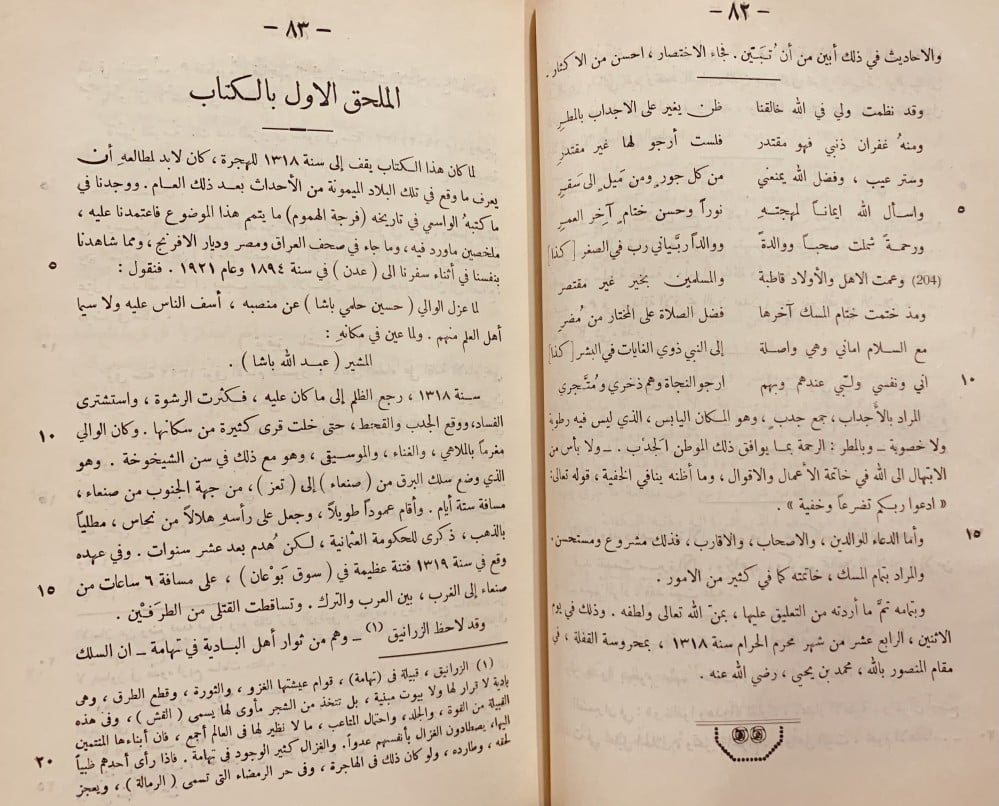 - ٨٢ -
والاحاديث في ذلك أبين من أن تُبَـيَّن . فجاء الاختصار ، احسن من الاكثار .
وقد نظمت ولي في الله خالقنا ظن يغير على الاجداب بالمطرِ
ومنهُ غفران ذنبي فهو مقتدر فلست أرجو لها غير مقتدرِ
وستر عيب ، وفضل الله يمنعني من كل جورٍ ومن مَيلٍ الى سَقَرِ
٥ واسأل الله ايمانـاً لمهجتـهِ نوراً وحسن ختامٍ آخرِ العمـرِ
ورحمـةً شملت صحبـاً ووالدةً ووالداً ربَّياني رب في الصغر [كذا]
(204) وعمت الاهل والأولاد قاطبة والمسلمين بخير غير مقتصر
ومذ ختمت ختام المسك آخرها فضل الصلاة على المختار من مُضرِ
مع السلام اماني وهي واصلة إلى النبي ذوي الغايات في البشر [كذا]
١٠ اني ونفسي ولبّي عندهم وبهم ارجو النجاة وهم ذخري ومُتَّجري
المراد بالأجداب ، جمع جدب ، وهو المكان اليابس ، الذي ليس فيه رطوبة
ولا خصوبة ــ وبالمطر : الرحمة بمـا يوافق ذلك الموطن الجدْب . ــ ولا بأس من
الابتهال الى الله في خاتمة الأعمال والاقوال ، وما أظنه ينافي الخفية ، قوله تعالى:
« ادعوا ربـكم تضرعاً وخفية » .
١٥ وأما الدعاء للوالدين ، والاصحاب ، والاقارب ، فذلك مشروع ومستحسن.
والمراد بتمام المسك ، خاتمته كما في كثير من الامور .
وبتمامه تمَّ ما أردته من التعليق عليها ، بمنّ الله تعالى ولطفه . وذلك في يوم
الاثنين ، الرابع عشر من شهر محرم الحرام سنة ١٣١٨ ، بمحروسة القفلة ، في
مقام المنصور بالله ، محمد بن يحيى ، رضي الله عنه .
- ٨٣ -
الملحق الاول بالـكتاب
لما كان هذا الـكتاب يقف إلى سنة ١٣١٨ للهجرة ، كان لابد لمطالعهِ أن
يعرف ما وقع في تلك البلاد الميمونة من الأحداث بعـد ذلك العـام . ووجدنا في
ما كتبهُ الواسعي في تاريخه (فرجة الهموم) ما يتمم هذا الموضوع فاعتمدنا عليه ،
ملخصين ماورد فيه ، وما جاء في صحف العراق ومصر وديار الافرنج ، ومما شاهدنا
٥ بنفسنا في أثناء سفرنا الى ( عدن ) في سنة ١٨٩٤ وعام ١٩٢١ . فنقول :
لما عزل الوالي ( حسين حلمي باشا ) عن منصبه ، أسف الناس عليه ولا سيما
أهل العلم منهم . ولما عين في مكانهِ :
المشير ( عبـد الله باشا ) .
سـنة ١٣١٨ ، رجع الظلم إلى ما كان عليه ، فـكثرت الرشوة ، واستشرى
١٠ الفساد، ووقع الجدب والقحط ، حتى خلت قرى كثيرة من سكانها . وكان الوالي
مغرماً بالملاهي ، والغناء ، والموسيقى ، وهو مع ذلك في سن الشيخوخة . وهو
الذي وضع سلك البرق من ( صنعاء ) إلى ( تعز ) ، من جهة الجنوب من صنعاء ،
مسافة ستة أيام . وأقام عموداً طويلاً ، وجعل على رأسهِ هلالاً من نحاس ، مطلياً
بالذهب ، ذكرى للحكومة العثمانية ، لـكن هُدم بعد عشر سنوات . وفي عهده
١٥ وقع في سنة ١٣١٩ فتنة عظيمة في ( سوق بَوْعان ) ، على مسافة ٦ ساعات من
صنعاء إلى الغرب ، بين العرب والترك . وتساقطت القتلى من الطرَفَيْن .
وقد لاحظ الزرانيق (١) ــ وهم من ثوار أهل البـادية في تهامة ــ ان السلك
(١) الزرانيق ، قبيلة في (تهامة) ، قوام عيشتها الغزو ، والثورة ، وقطع الطرق ، وهى
بادية لا قرار لها ولا بيوت مبنية ، بل تتخذ من الشجر مأوى لها يسمى ( القش ) ، وفى هذه
القبيلة من القوة ، والجلد ، واحتمال المتاعب ، ما لا نظير لها فى العالم أجمع ، فان أبناءها المنتمين
٢٠ اليها، يصطادون الغزال بأنفسهم عدواً . والغزال كثير الوجود فى تهامة . فاذا رأى أحدهم ظبياً
لحقه ، وطارده ، ولو كان ذلك فى الهاجرة ، وفى حر الرمضاء التى تسمى ( الرمالة ) ، ويعجز